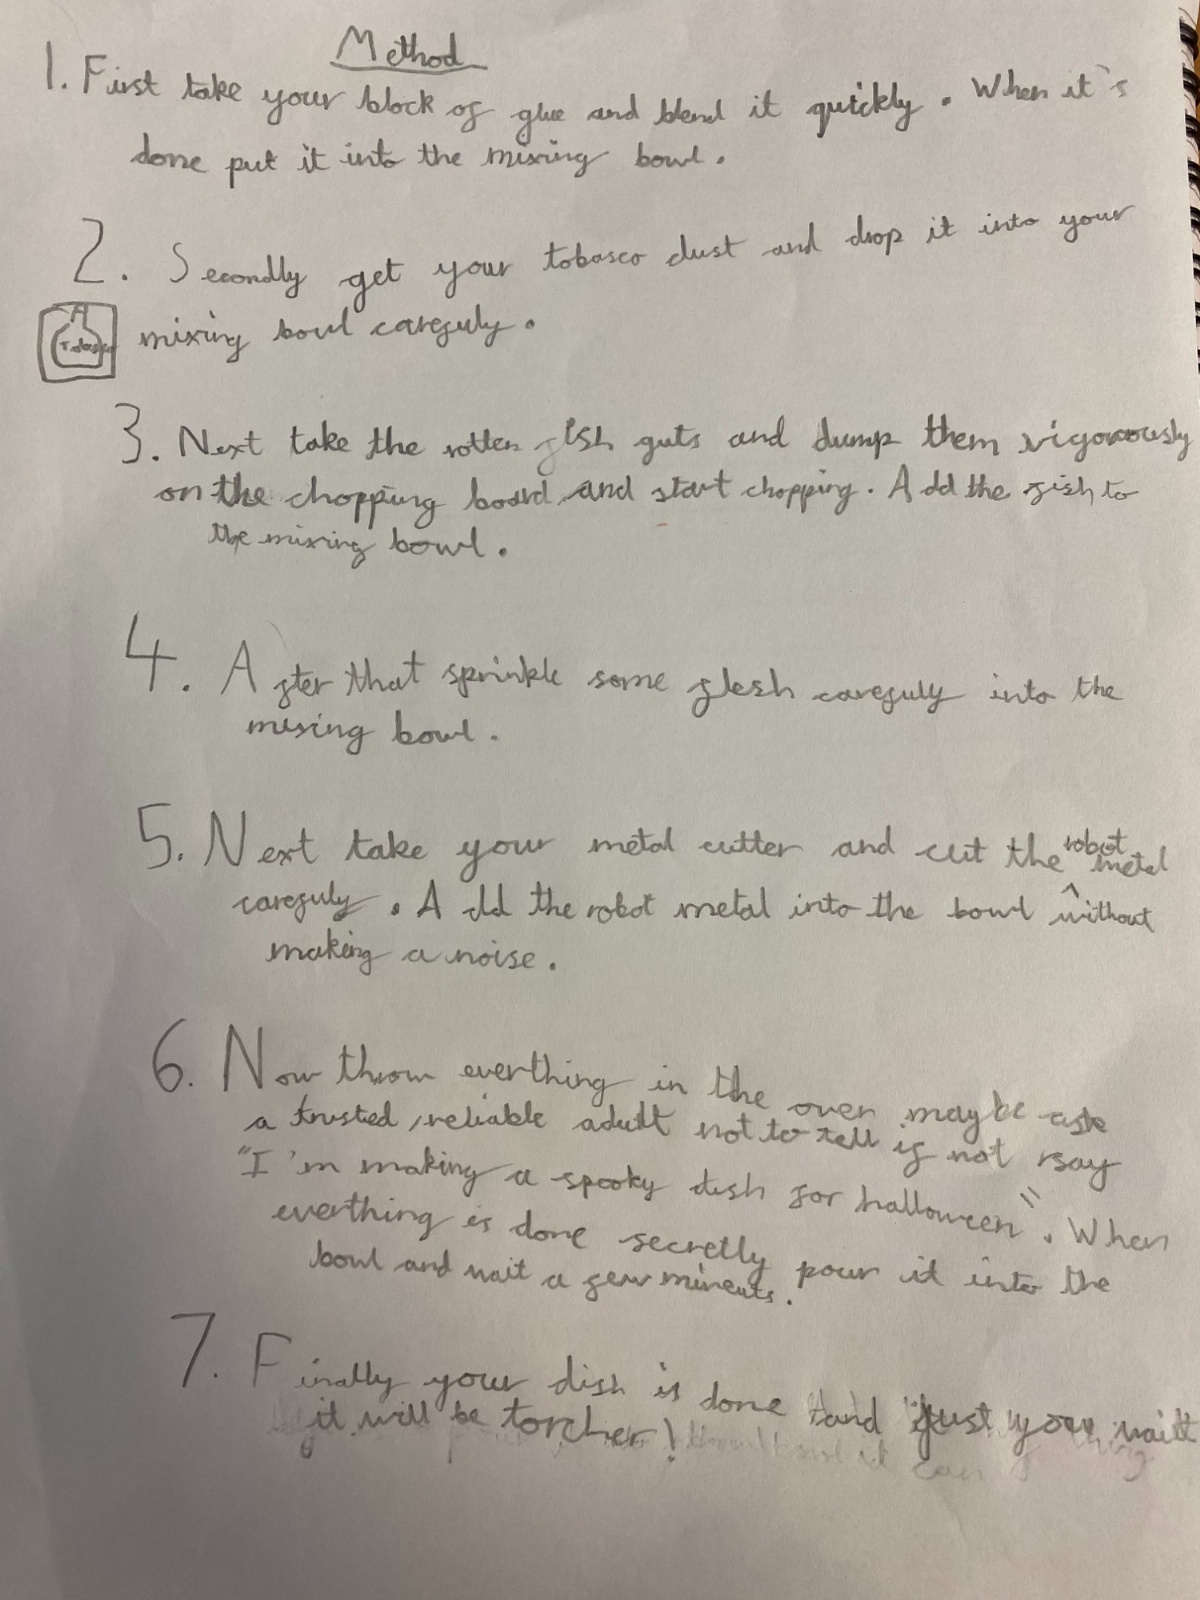 Method
1. First take your block of glue and blend it quickly. When it's
done put it into the mixing bowl.
2. Secondly get your tobasco dust and drop it into your
mixing bowl carefuly.
Tobasco
3. Next take the rotten fish guts and dump them vigorously
on the chopping board and start chopping. Add the fish to
the mixing bowl.
4. After that sprinkle some flesh carefuly into the
mixing bowl.
5. Next take your metal cutter and cut the robot metal
carefuly. Add the robot metal into the bowl without
making a noise.
6. Now throw everthing in the oven maybe ask
a trusted, reliable adult not to tell if not say
"I'm making a spooky dish for halloween". When
everthing is done secretly pour it into the
bowl and wait a few mineuts.
7. Finally your dish is done and just you wait
it will be torcher!